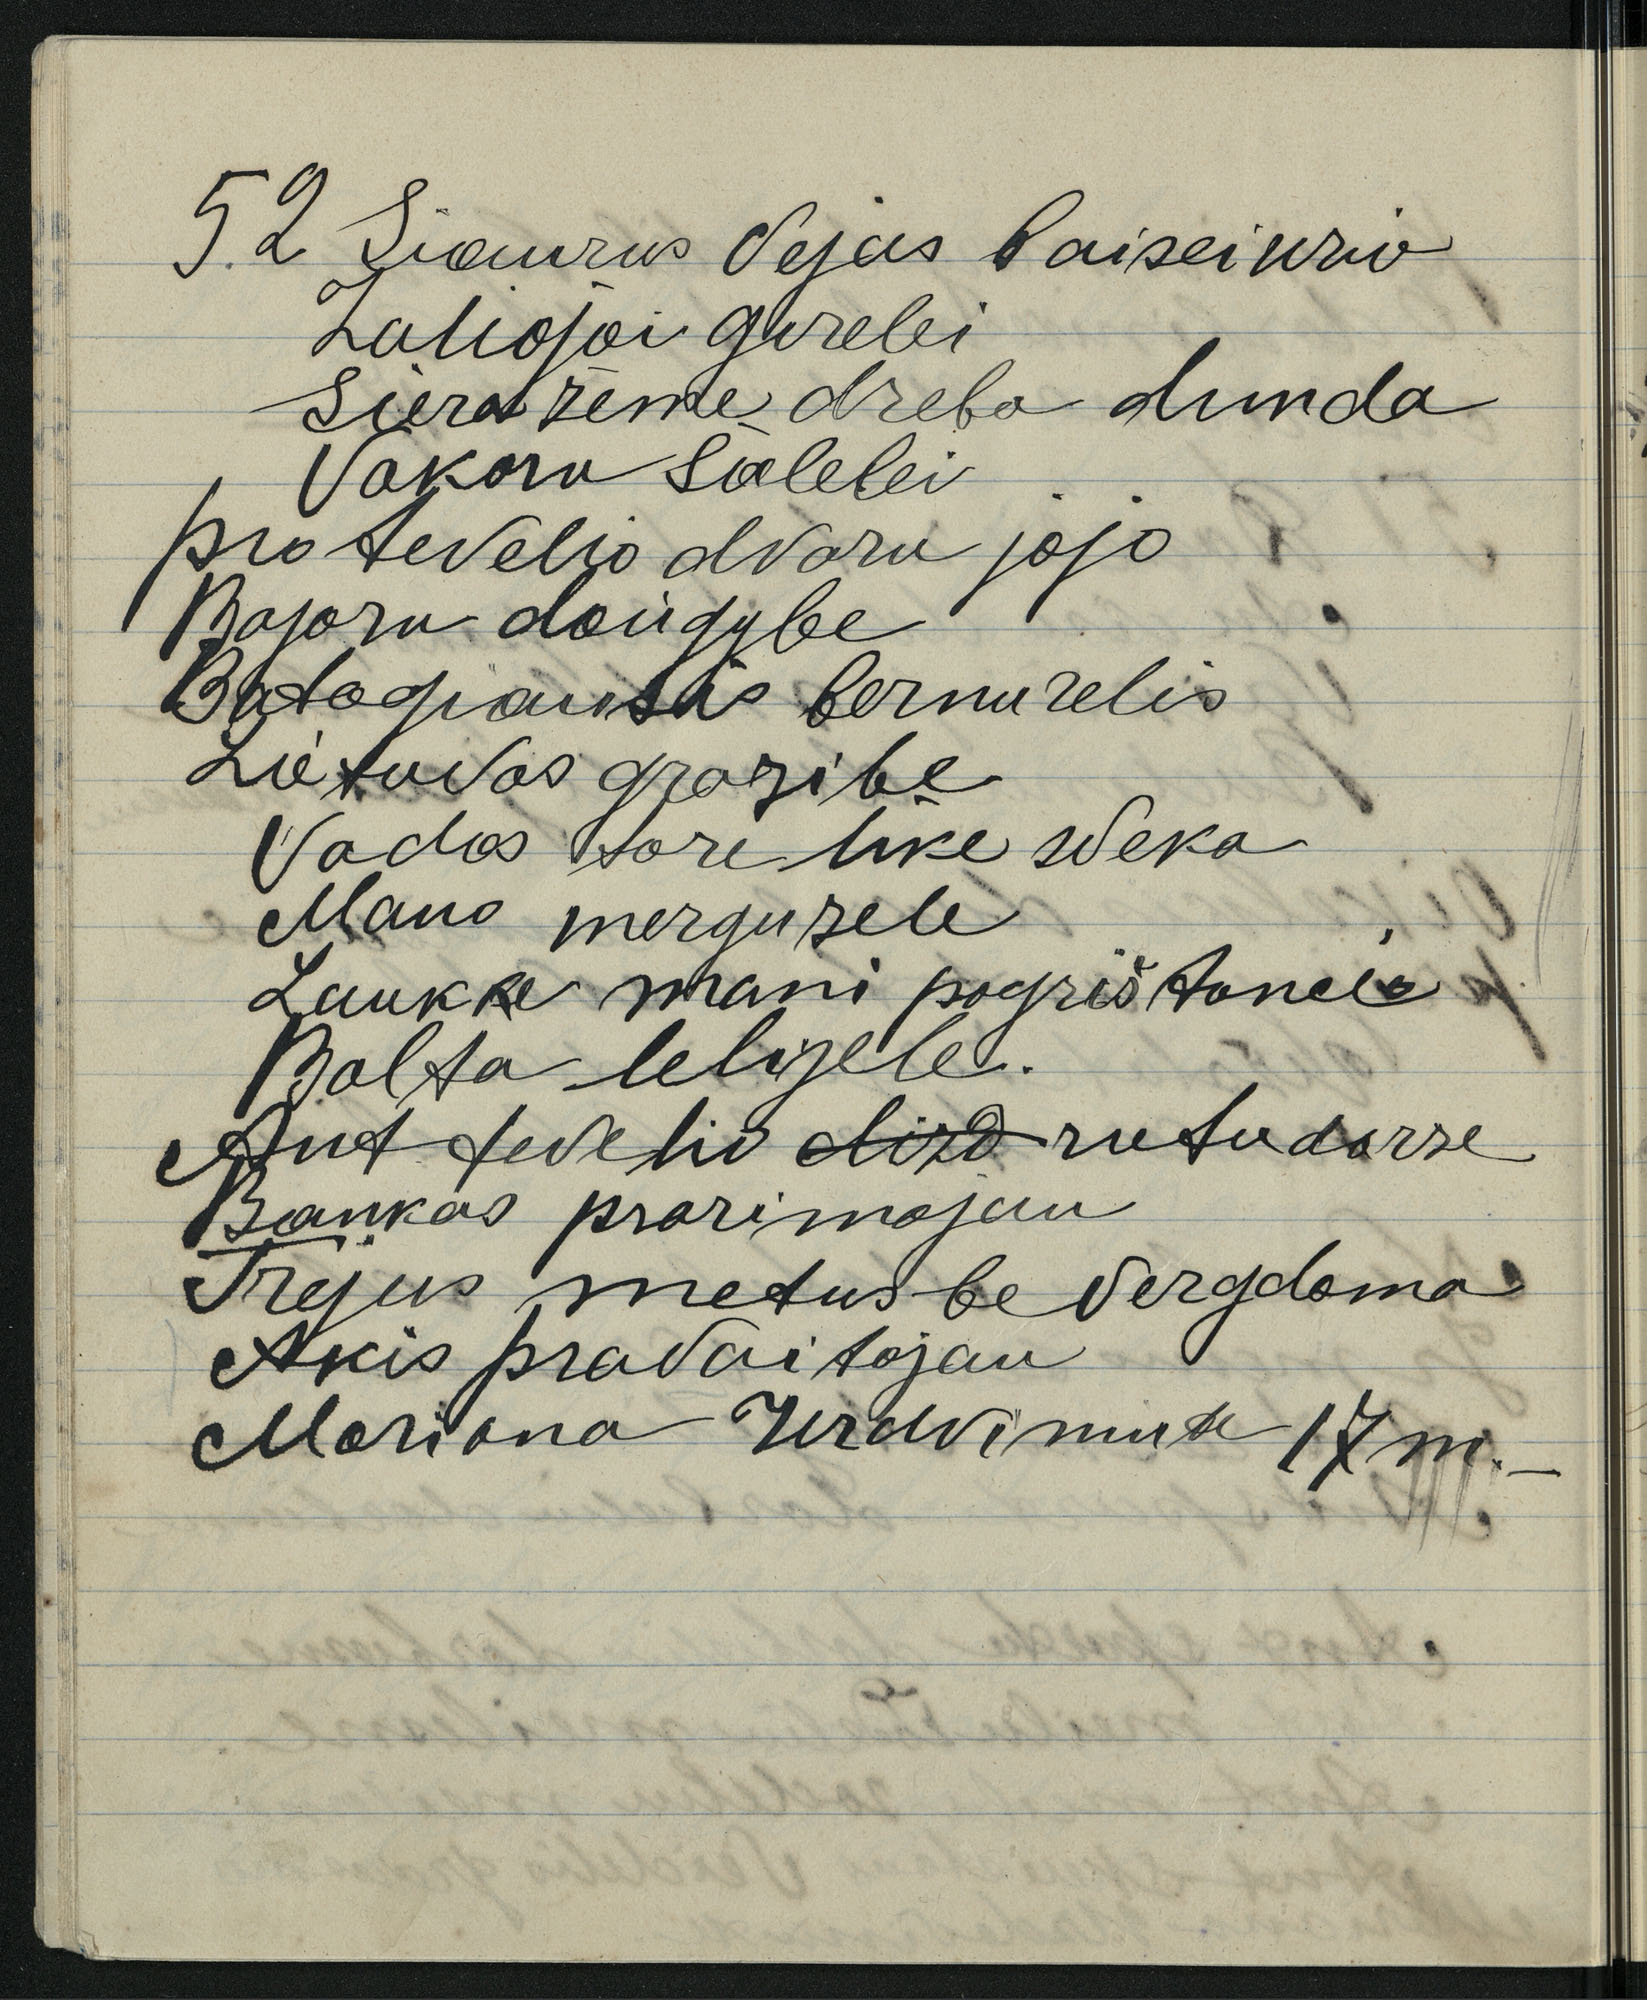 52 Siaurus Vejas baisei uziv
Zaliojoi girelei
Siera zeme dreba dunda
Vakaru Šalelei
pro tevelio dvaru jojo
Bajoru daugybe
Batogiausis bernuzelis
Lietuvos grazibe
Vados tare like sveka
Mano merguzele
Laukke mani pogrištoneie
Balta lelijele.
Ant tevelio rutu darze
Rankas prarimojau
Trejus metus be vergdama
Akis pravaitojau
Moriona 17 m. –